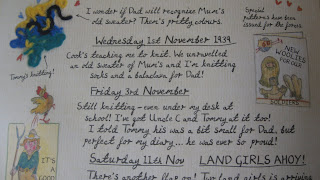 I wonder if Dad will recognise Mum's
old sweater? Then's pretty colours.
Special
patterns have been
issued for the forces
Wednesday 1st November 1939
Cook's teaching me to knit. We unravelled
an old sweater of Mum's and I'm knitting
socks and a balaclava for Dad!
Tommy's knitting!
NEW
WOOLIES
FOR OUR
SOLDIERS
Friday 3rd November
Still knitting - even under my desk at
school! I've got Uncle C and Tommy at it too!
I told Tommy his was a bit small for Dad, but
perfect for my diary... he was ever so proud!
IT'S
A
GOOD
Saturday 11th Nov
LAND GIRLS AHOY!
There's another flap on!
Two land girls is arriving